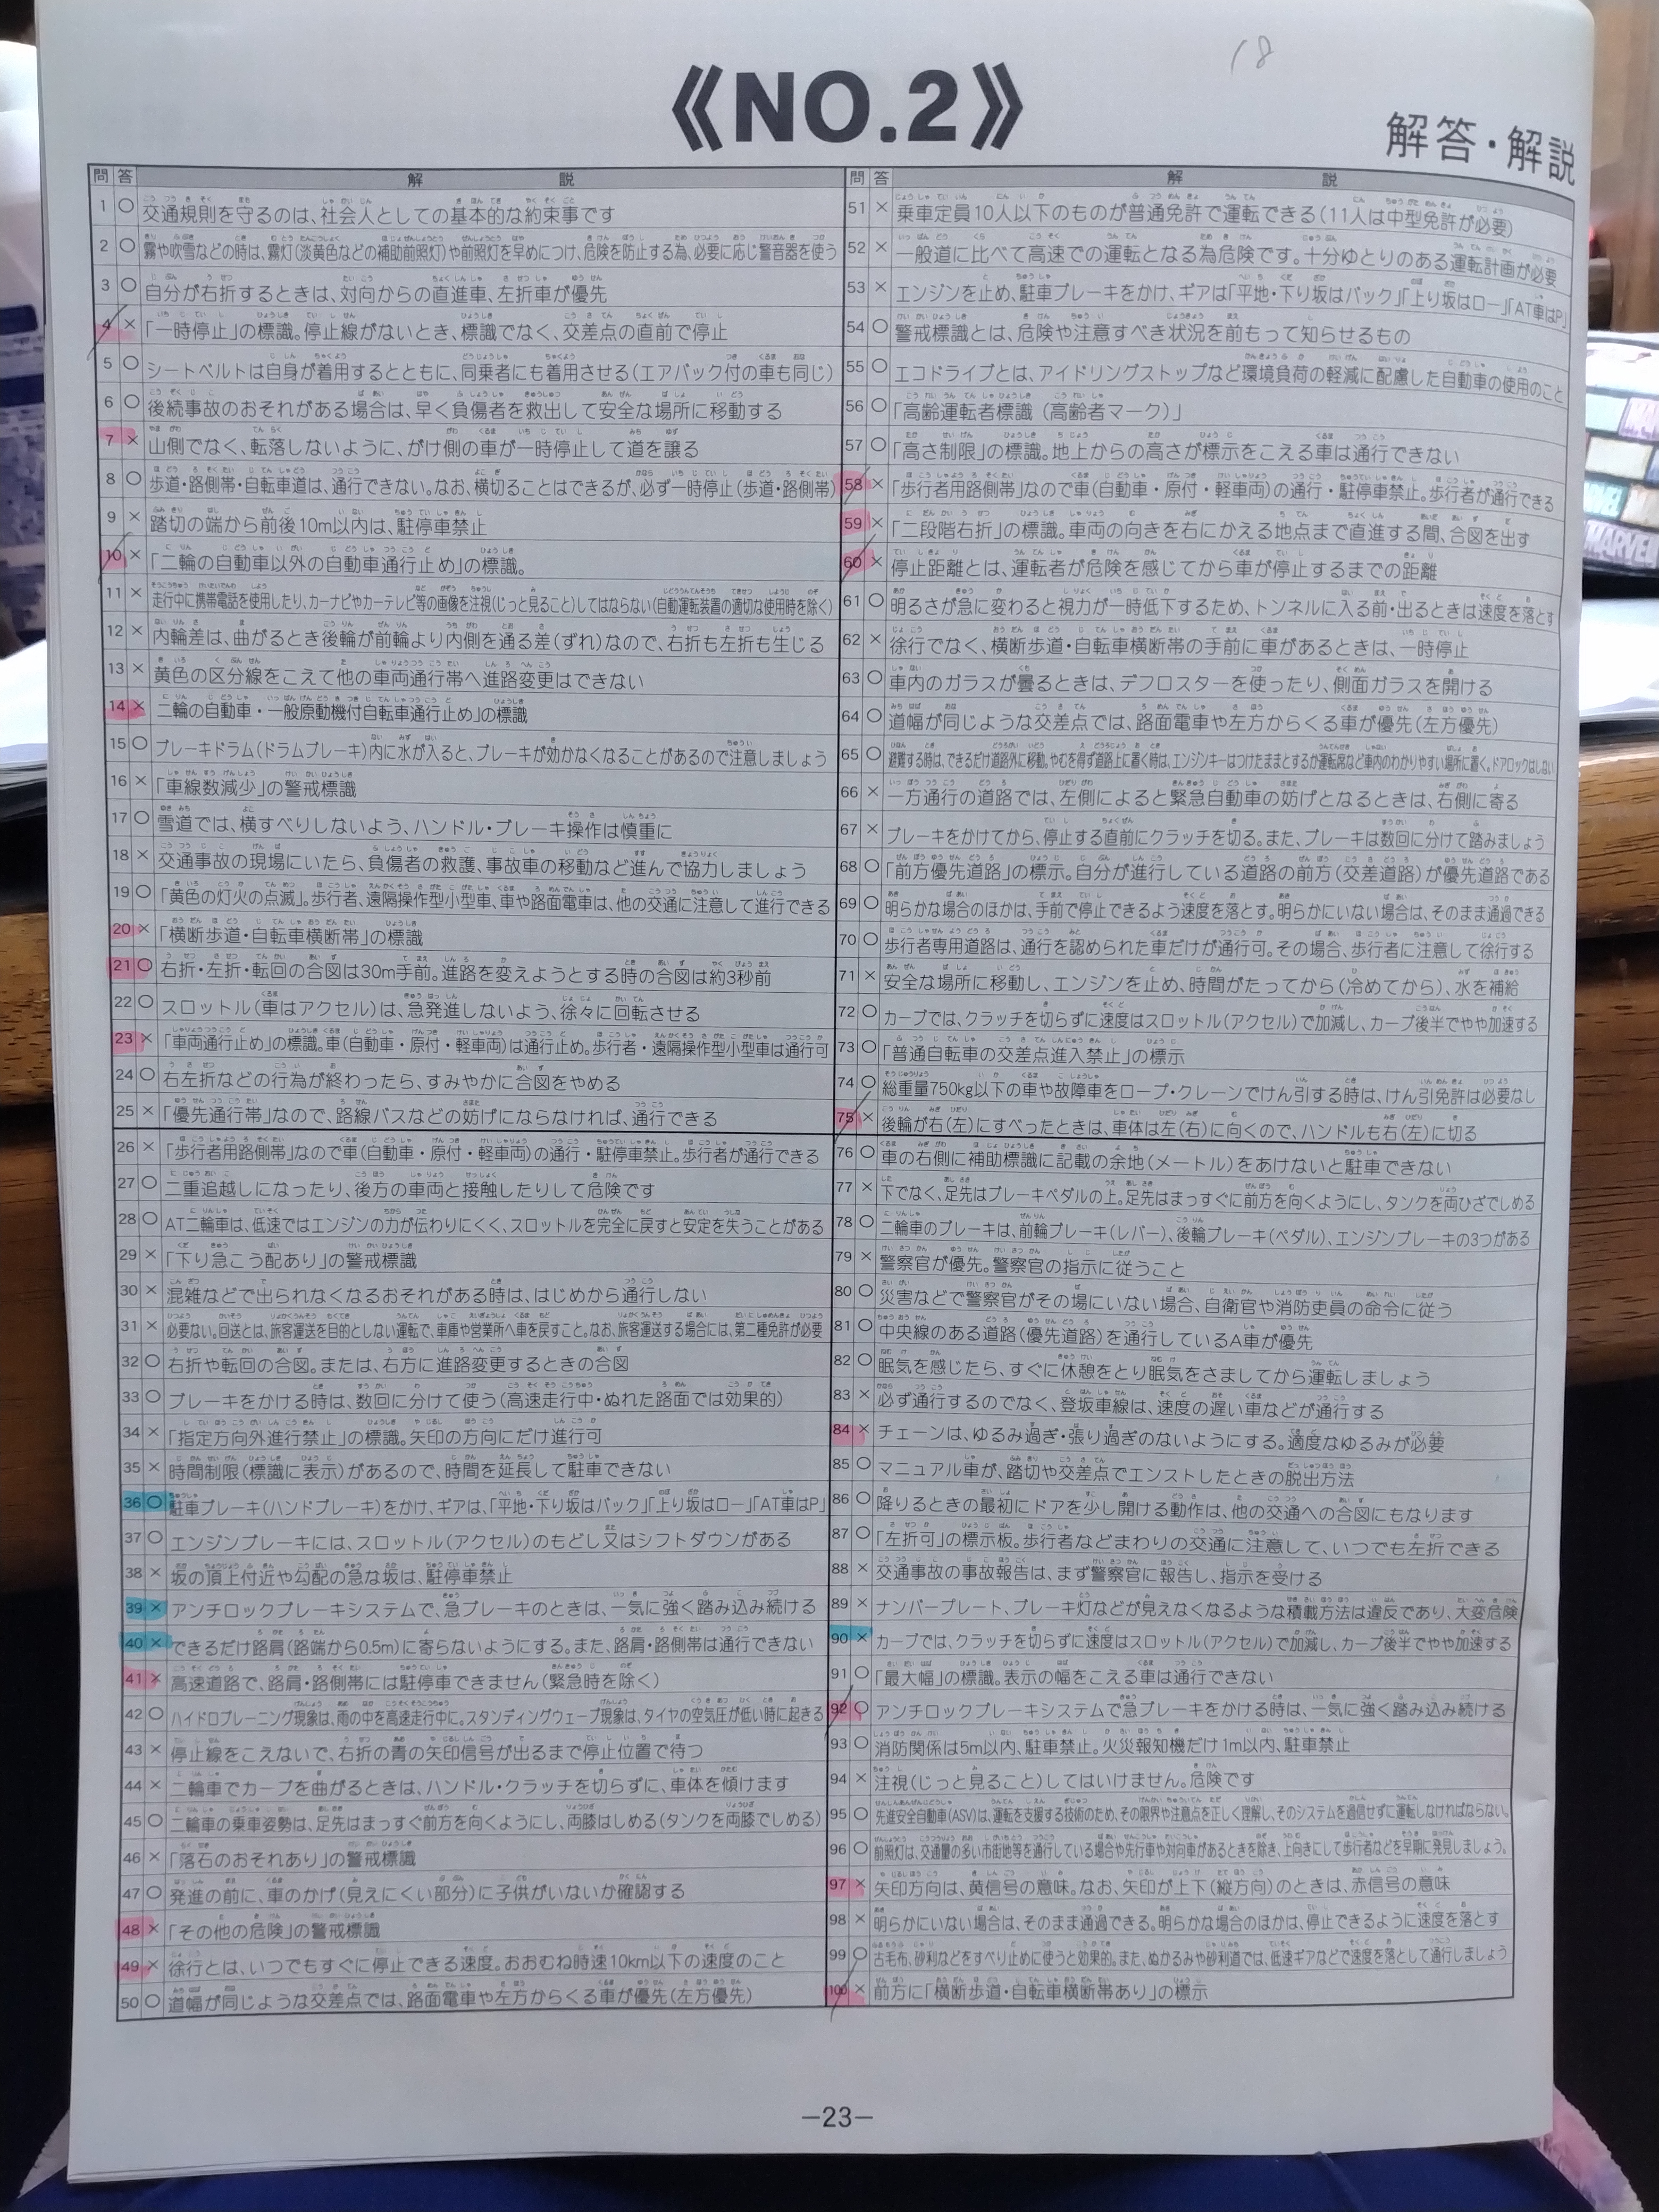 18
《NO.2》
解答・解説
問 答 解 説
1 ○ 交通規則を守るのは、社会人としての基本的な約束事です
2 ○ 霧や吹雪などの時は、霧灯(淡黄色などの補助前照灯)や前照灯を早めにつけ、危険を防止する為、必要に応じ警音器を使う
3 ○ 自分が右折するときは、対向からの直進車、左折車が優先
4 × 「一時停止」の標識。停止線がないとき、標識でなく、交差点の直前で停止
5 ○ シートベルトは自身が着用するとともに、同乗者にも着用させる(エアバック付の車も同じ)
6 ○ 後続事故のおそれがある場合は、早く負傷者を救出して安全な場所に移動する
7 × 山側でなく、転落しないように、がけ側の車が一時停止して道を譲る
8 ○ 歩道・路側帯・自転車道は、通行できない。なお、横切ることはできるが、必ず一時停止(歩道・路側帯)
9 × 踏切の端から前後10m以内は、駐停車禁止
10 × 「二輪の自動車以外の自動車通行止め」の標識。
11 × 走行中に携帯電話を使用したり、カーナビやカーテレビ等の画像を注視(じっと見ること)してはならない(自動運転装置の適切な使用時を除く)
12 × 内輪差は、曲がるとき後輪が前輪より内側を通る差(ずれ)なので、右折も左折も生じる
13 × 黄色の区分線をこえて他の車両通行帯へ進路変更はできない
14 × 二輪の自動車・一般原動機付自転車通行止め」の標識
15 ○ ブレーキドラム(ドラムブレーキ)内に水が入ると、ブレーキが効かなくなることがあるので注意しましょう
16 × 「車線数減少」の警戒標識
17 ○ 雪道では、横すべりしないよう、ハンドル・ブレーキ操作は慎重に
18 × 交通事故の現場にいたら、負傷者の救護、事故車の移動など進んで協力しましょう
19 ○ 「黄色の灯火の点滅」。歩行者、遠隔操作型小型車、車や路面電車は、他の交通に注意して進行できる
20 × 「横断歩道・自転車横断帯」の標識
21 ○ 右折・左折・転回の合図は30m手前。進路を変えようとする時の合図は約3秒前
22 ○ スロットル(車はアクセル)は、急発進しないよう、徐々に回転させる
23 × 「車両通行止め」の標識。車(自動車・原付・軽車両)は通行止め。歩行者・遠隔操作型小型車は通行可
24 ○ 右左折などの行為が終わったら、すみやかに合図をやめる
25 × 「優先通行帯」なので、路線バスなどの妨げにならなければ、通行できる
26 × 「歩行者用路側帯」なので車(自動車・原付・軽車両)の通行・駐停車禁止。歩行者が通行できる
27 ○ 二重追越しになったり、後方の車両と接触したりして危険です
28 ○ AT二輪車は、低速ではエンジンの力が伝わりにくく、スロットルを完全に戻すと安定を失うことがある
29 × 「下り急こう配あり」の警戒標識
30 × 混雑などで出られなくなるおそれがある時は、はじめから通行しない
31 × 必要ない。回送とは、旅客運送を目的としない運転で、車庫や営業所へ車を戻すこと。なお、旅客運送する場合には、第二種免許が必要
32 ○ 右折や転回の合図。または、右方に進路変更するときの合図
33 ○ ブレーキをかける時は、数回に分けて使う(高速走行中・ぬれた路面では効果的)
34 × 「指定方向外進行禁止」の標識。矢印の方向にだけ進行可
35 × 時間制限(標識に表示)があるので、時間を延長して駐車できない
36 ○ 駐車ブレーキ(ハンドブレーキ)をかけ、ギアは、「平地・下り坂はバック」「上り坂はロー」「AT車はP」
37 ○ エンジンブレーキには、スロットル(アクセル)のもどし又はシフトダウンがある
38 × 坂の頂上付近や勾配の急な坂は、駐停車禁止
39 × アンチロックブレーキシステムで、急ブレーキのときは、一気に強く踏み込み続ける
40 × できるだけ路肩(路端から0.5m)に寄らないようにする。また、路肩・路側帯は通行できない
41 × 高速道路で、路肩・路側帯には駐停車できません(緊急時を除く)
42 ○ ハイドロプレーニング現象は、雨の中を高速走行中に。スタンディングウェーブ現象は、タイヤの空気圧が低い時に起きる
43 × 停止線をこえないで、右折の青の矢印信号が出るまで停止位置で待つ
44 × 二輪車でカーブを曲がるときは、ハンドル・クラッチを切らずに、車体を傾けます
45 ○ 二輪車の乗車姿勢は、足先はまっすぐ前方を向くようにし、両膝はしめる(タンクを両膝でしめる)
46 × 「落石のおそれあり」の警戒標識
47 ○ 発進の前に、車のかげ(見えにくい部分)に子供がいないか確認する
48 × 「その他の危険」の警戒標識
49 × 徐行とは、いつでもすぐに停止できる速度。おおむね時速10km以下の速度のこと
50 ○ 道幅が同じような交差点では、路面電車や左方からくる車が優先(左方優先)
問 答 解 説
51 × 乗車定員10人以下のものが普通免許で運転できる(11人は中型免許が必要)
52 × 一般道に比べて高速での運転となる為危険です。十分ゆとりのある運転計画が必要
53 × エンジンを止め、駐車ブレーキをかけ、ギアは「平地・下り坂はバック」「上り坂はロー」「AT車はP」
54 ○ 警戒標識とは、危険や注意すべき状況を前もって知らせるもの
55 ○ エコドライブとは、アイドリングストップなど環境負荷の軽減に配慮した自動車の使用のこと
56 ○ 「高齢運転者標識(高齢者マーク)」
57 ○ 「高さ制限」の標識。地上からの高さが標示をこえる車は通行できない
58 × 「歩行者用路側帯」なので車(自動車・原付・軽車両)の通行・駐停車禁止。歩行者が通行できる
59 × 「二段階右折」の標識。車両の向きを右にかえる地点まで直進する間、合図を出す
60 × 停止距離とは、運転者が危険を感じてから車が停止するまでの距離
61 ○ 明るさが急に変わると視力が一時低下するため、トンネルに入る前・出るときは速度を落とす
62 × 徐行でなく、横断歩道・自転車横断帯の手前に車があるときは、一時停止
63 ○ 車内のガラスが曇るときは、デフロスターを使ったり、側面ガラスを開ける
64 ○ 道幅が同じような交差点では、路面電車や左方からくる車が優先(左方優先)
65 ○ 避難する時は、できるだけ道路外に移動。やむを得ず道路上に置く時は、エンジンキーはつけたままとするか運転席など車内のわかりやすい場所に置く。ドアロックはしない
66 × 一方通行の道路では、左側によると緊急自動車の妨げとなるときは、右側に寄る
67 × ブレーキをかけてから、停止する直前にクラッチを切る。また、ブレーキは数回に分けて踏みましょう
68 ○ 「前方優先道路」の標示。自分が進行している道路の前方(交差道路)が優先道路である
69 ○ 明らかな場合のほかは、手前で停止できるよう速度を落とす。明らかにいない場合は、そのまま通過できる
70 ○ 歩行者専用道路は、通行を認められた車だけが通行可。その場合、歩行者に注意して徐行する
71 × 安全な場所に移動し、エンジンを止め、時間がたってから(冷めてから)、水を補給
72 ○ カーブでは、クラッチを切らずに速度はスロットル(アクセル)で加減し、カーブ後半でやや加速する
73 ○ 「普通自転車の交差点進入禁止」の標示
74 ○ 総重量750kg以下の車や故障車をロープ・クレーンでけん引する時は、けん引免許は必要なし
75 × 後輪が右(左)にすべったときは、車体は左(右)に向くので、ハンドルも右(左)に切る
76 ○ 車の右側に補助標識に記載の余地(メートル)をあけないと駐車できない
77 × 下でなく、足先はブレーキペダルの上。足先はまっすぐに前方を向くようにし、タンクを両ひざでしめる
78 ○ 二輪車のブレーキは、前輪ブレーキ(レバー)、後輪ブレーキ(ペダル)、エンジンブレーキの3つがある
79 × 警察官が優先。警察官の指示に従うこと
80 ○ 災害などで警察官がその場にいない場合、自衛官や消防吏員の命令に従う
81 ○ 中央線のある道路(優先道路)を通行しているA車が優先
82 ○ 眠気を感じたら、すぐに休憩をとり眠気をさましてから運転しましょう
83 × 必ず通行するのでなく、登坂車線は、速度の遅い車などが通行する
84 × チェーンは、ゆるみ過ぎ・張り過ぎのないようにする。適度なゆるみが必要
85 ○ マニュアル車が、踏切や交差点でエンストしたときの脱出方法
86 ○ 降りるときの最初にドアを少し開ける動作は、他の交通への合図にもなります
87 ○ 「左折可」の標示板。歩行者などまわりの交通に注意して、いつでも左折できる
88 × 交通事故の事故報告は、まず警察官に報告し、指示を受ける
89 × ナンバープレート、ブレーキ灯などが見えなくなるような積載方法は違反であり、大変危険
90 × カーブでは、クラッチを切らずに速度はスロットル(アクセル)で加減し、カーブ後半でやや加速する
91 ○ 「最大幅」の標識。表示の幅をこえる車は通行できない
92 ○ アンチロックブレーキシステムで急ブレーキをかける時は、一気に強く踏み込み続ける
93 ○ 消防関係は5m以内、駐車禁止。火災報知機だけ1m以内、駐車禁止
94 × 注視(じっと見ること)してはいけません。危険です
95 ○ 先進安全自動車(ASV)は、運転を支援する技術のため、その限界や注意点を正しく理解し、そのシステムを過信せずに運転しなければならない。
96 ○ 前照灯は、交通量の多い市街地等を通行している場合や先行車や対向車があるときを除き、上向きにして歩行者などを早期に発見しましょう。
97 × 矢印方向は、黄信号の意味。なお、矢印が上下(縦方向)のときは、赤信号の意味
98 × 明らかにいない場合は、そのまま通過できる。明らかな場合のほかは、停止できるように速度を落とす
99 ○ 古毛布、砂利などをすべり止めに使うと効果的。また、ぬかるみや砂利道では、低速ギアなどで速度を落として通行しましょう
100 × 前方に「横断歩道・自転車横断帯あり」の標示
−23−
MARVEL